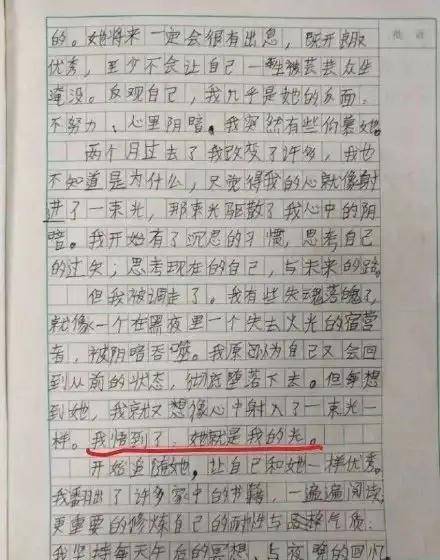 的。她将来一定会很有出息，既开朗又
优秀，至少不会让自己一生被芸芸众生
淹没。反观自己，我几乎是她的反面：
不努力、心里阴暗。我突然有些仰慕她。
两个月过去了我改变了许多，我也
不知道是为什么，只觉得我的心就像射
进了一束光，那束光驱散了我心中的阴
暗。我开始有了沉思的习惯，思考自己
的过失；思考现在的自己，与未来的路。
但我被调走了。我有些失魂落魄了，
就像一个在黑夜里一个失去火光的宿营
者，被阴暗吞噬。我原因为自己又会回
到从前的状态，彻底堕落下去。但每想
到她，我就又想像心中射入了一束光一
样。我悟到了：她就是我的光。
开始追随她，让自己和她一样优秀。
我翻出了许多家中的书籍，一遍遍阅读，
更重要的修炼自己的耐性与品格气质：
我坚持每天午后的冥想，与夜晚的回忆